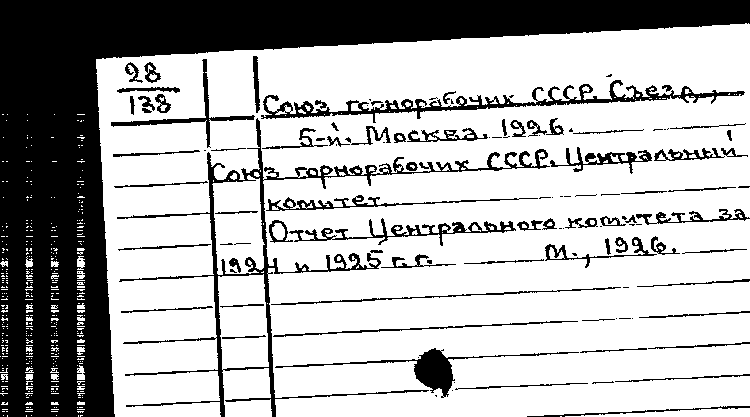 28
138
Союз горнорабочих СССР. Съезд,
5-й. Москва. 1926.
Союз горнорабочих СССР. Центральный
комитет.
Отчет Центрального комитета за
1924 и 1925 г.г. М., 1926.